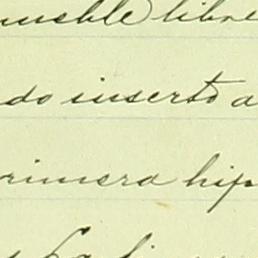 mueble libre
do inserto a
rimera hip